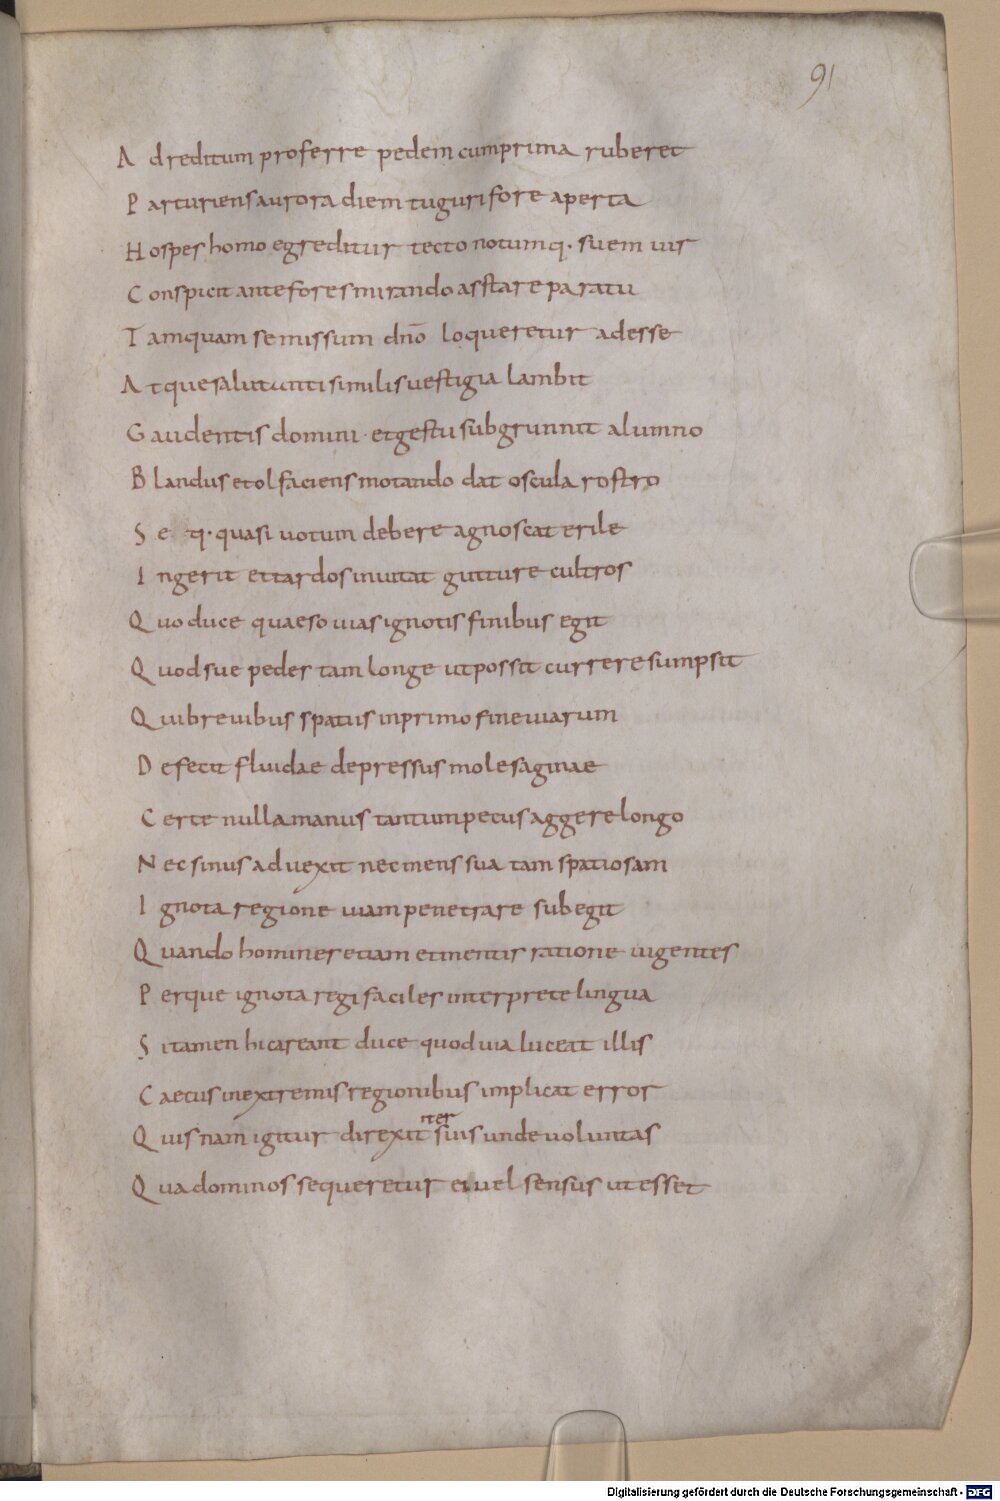 91
Ad reditum proferre pedem cum prima ruberet
Parturiens aurora diem tuguri fore aperta
Hospes homo egreditur tecto notumq· suem uis
Conspicit ante fores mirando asstare paratu
Tamquam se missum dnō loqueretur adesse
Atque salutanti similis uestigia lambit
Gaudentis domini· et gestu subgrunnit alumno
Blandus et olfaciens motando dat oscula rostro
Se q· quasi uotum debere agnoscat erile
Ingerit et tardos inuitat gutture cultros
Quo duce quaeso uias ignotis finibus egit
Quod sue pedes tam longe ut possit currere sumpsit
Qui breuibus spatiis in primo fine uiarum
Defecit fluidae depressus mole saginae
Certe nulla manus tantum pecus aggere longo
Nec sinus aduexit nec mens sua tam spatiosam
Ignota regione uiam penetrare subegit
Quando homines etiam et mentis ratione uigentes
Perque ignota regi faciles interprete lingua
Si tamen hi careant duce quod uia luceat illis
Caecus in extremis regionibus implicat error
Quisnam igitur direxit iter suis unde uoluntas
Qua dominos sequeretur ei uel sensus ut esset
Digitalisierung gefördert durch die Deutsche Forschungsgemeinschaft - DFG